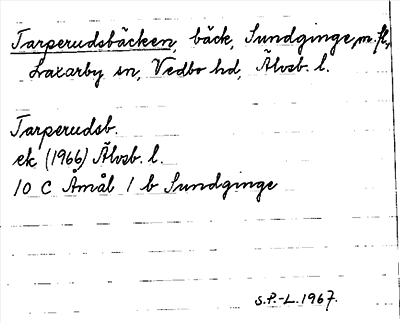 Tarperudsbäcken, bäck, Sundginge, m. fl.,
Laxarby sn, Vedbo hd, Älvsb. l.
Tarperudsb.
ek (1966) Älvsb. l.
10 C Åmål 1 b Sundginge
S.P.-L. 1967.